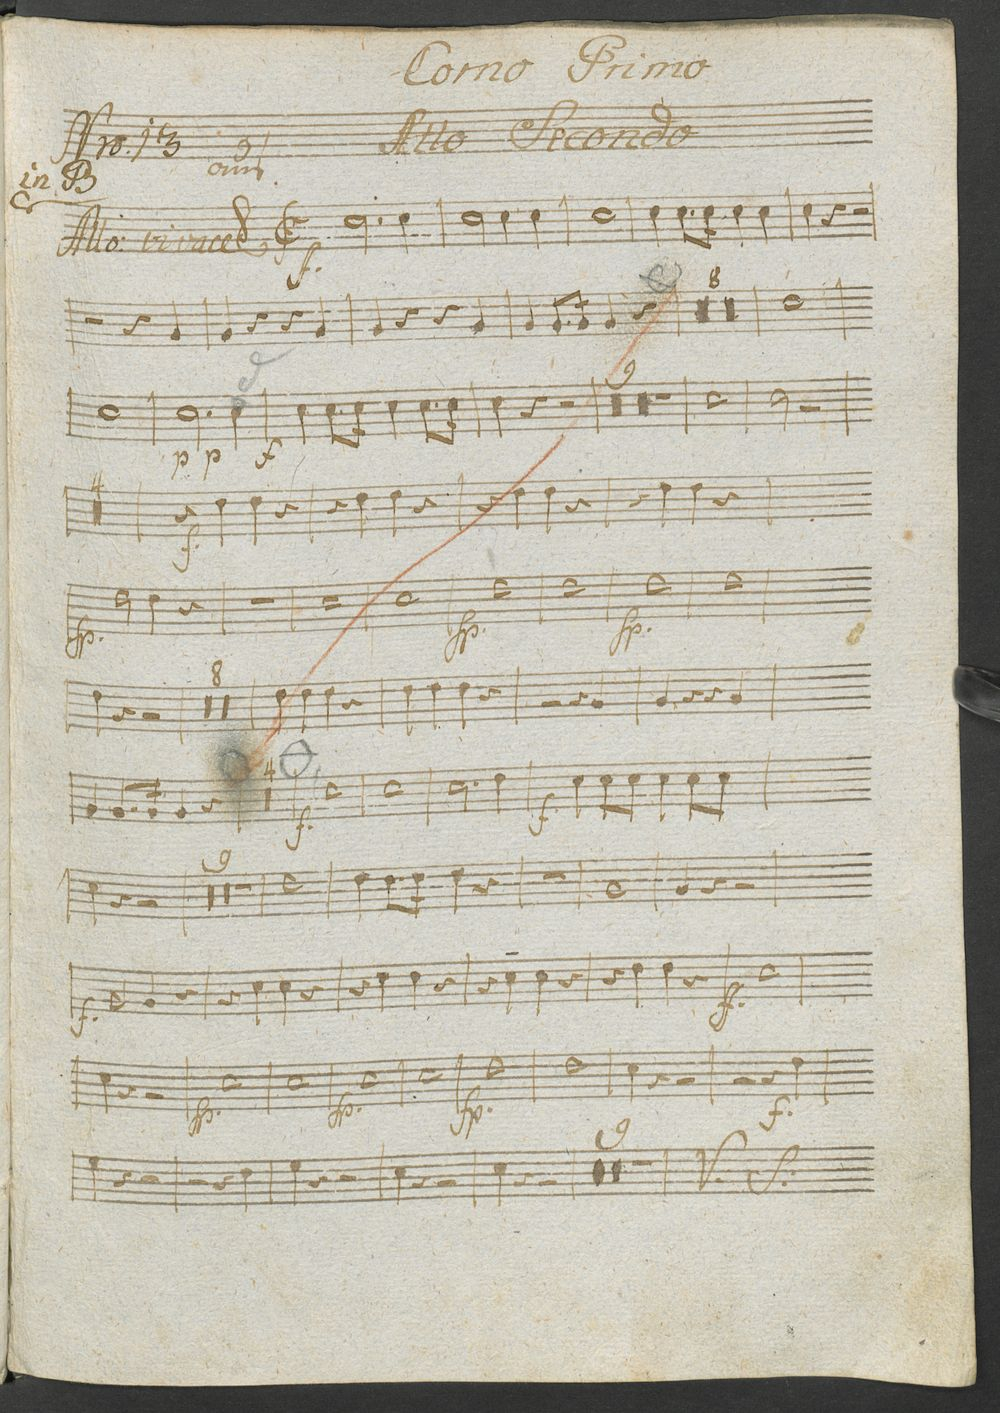 Corno Primo
Nro. 13 Atto Secondo
in B
Allo: vivace f.
8
9
p p f
4
f.
fp. fp. fp.
8
4
f. f.
9
f. ff.
fp. fp. fp. f.
9
V. S.